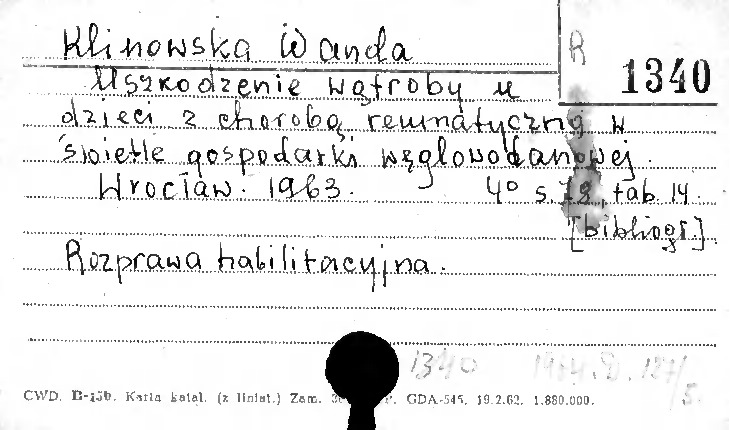 Klinowska Wanda
R 1340
Uszkodzenie wątroby u
dzieci z chorobą reumatyczną w
świetle gospodarki węglowodanowej.
Wrocław. 1963. 4° s. 78, tab. 14.
[bibliogr.]
Rozprawa habilitacyjna.
1340
CWD. B-150. Karta katal. (z liniat.) Zam. GDA-545. 19.2.62. 1.880.000.